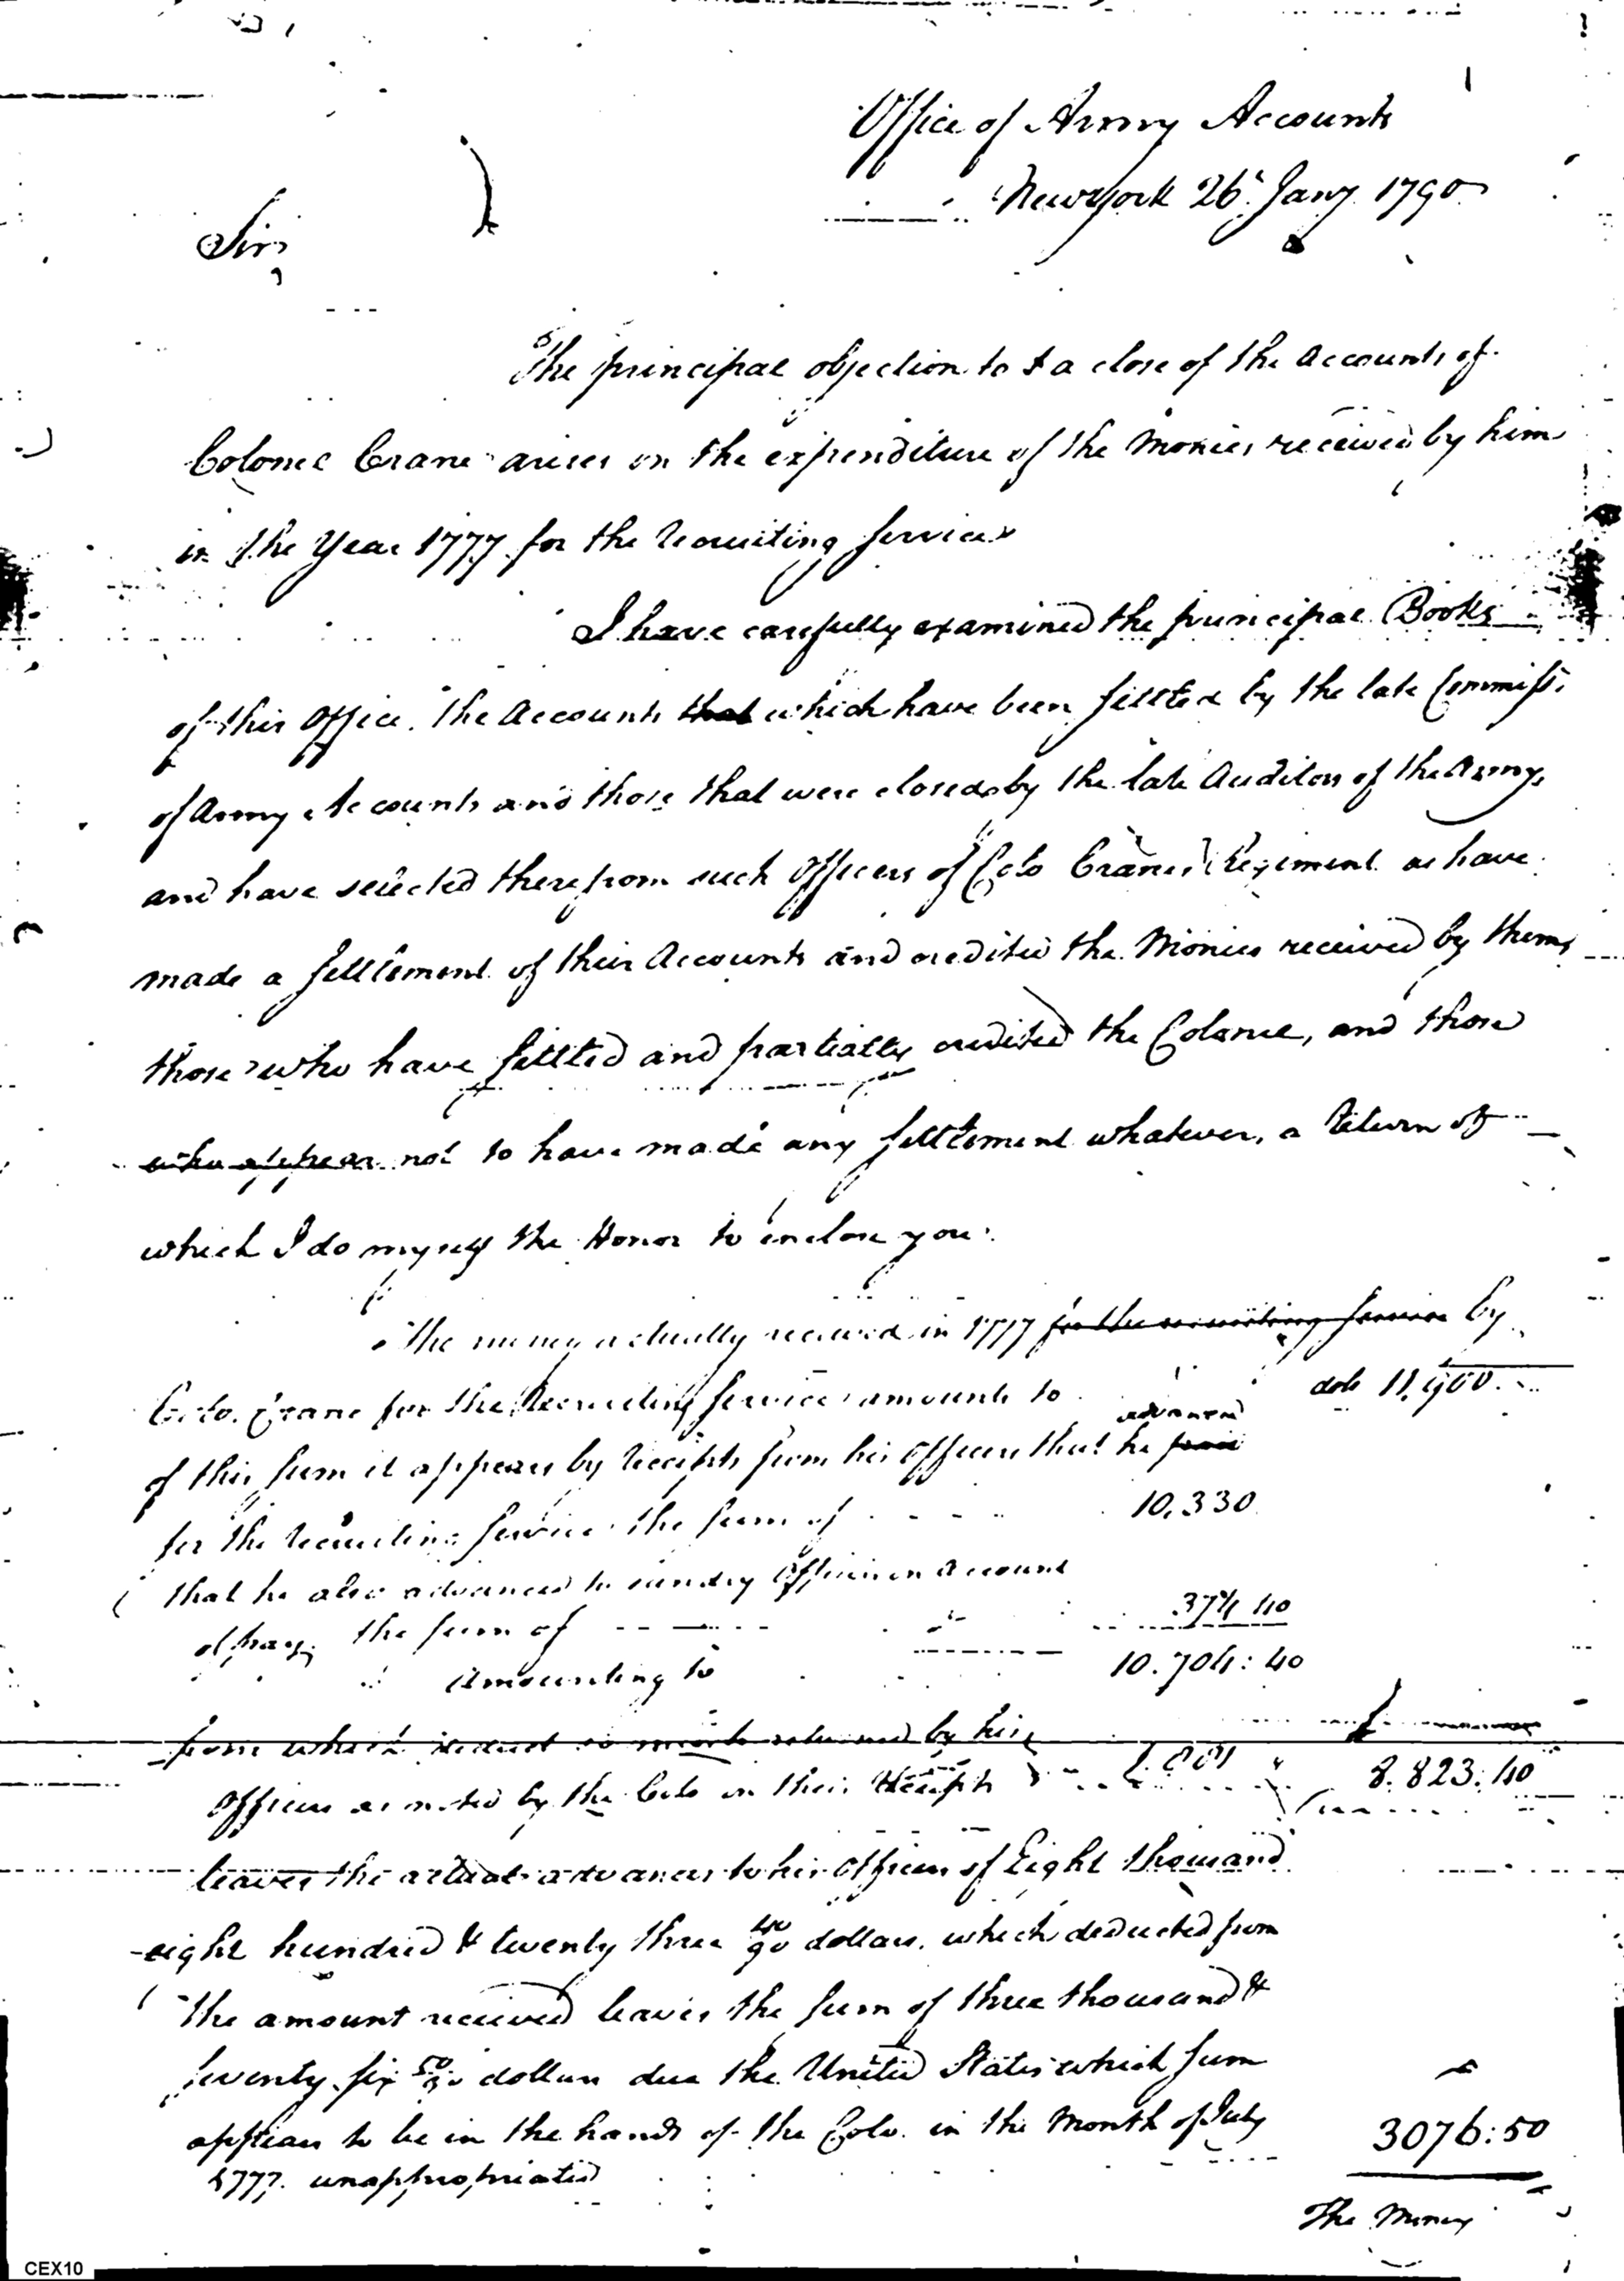 Office of Army Accounts
Newyork 26t Jany 1790
Sir,
The principal objection to a close of the Accounts of
Colonel Crane arises on the expenditure of the Monies received by him
in the Year 1777 for the recruiting Service
I have carefully examined the principal Books
of this Office. the Accounts that which have been settled by the late Commissr.
of Army Accounts and those that were closed by the late Auditors of the Army,
and have selected therefrom such Officers of Colo Cranes Regiment as have
made a settlement of their Accounts and credited the Monies received by them,
those who have settled and partially credited the Colonel, and those
who appear not to have made any settlement whatever, a return of
which I do myself the Honor to enclose you.
The money actually received in 1777 for the recruiting service by
Colo. Crane for the Recruiting Service amounts to dols 11,900.
advanced
of this sum it appears by receipts from his Officers that he paid
for the recruiting service the sum of 10,330
that he also advanced to sundry Officers on account
of pay. the sum of 374 40
Amounting to 10.704: 40
from which deduct so much returned by his
Officers as noted by the Colo on their receipts 1.881 " 8.823:40
leaves the actual advances to his Officers of Eight thousand
eight hundred & twenty three 40/90 dollars. which deducted from
the amount received leaves the sum of three thousand &
seventy six 50/90 dollars due the United States which sum
appears to be in the hands of the Colo. in the Month of July
1777. unappropriated 3076:50
The Money
CEX10